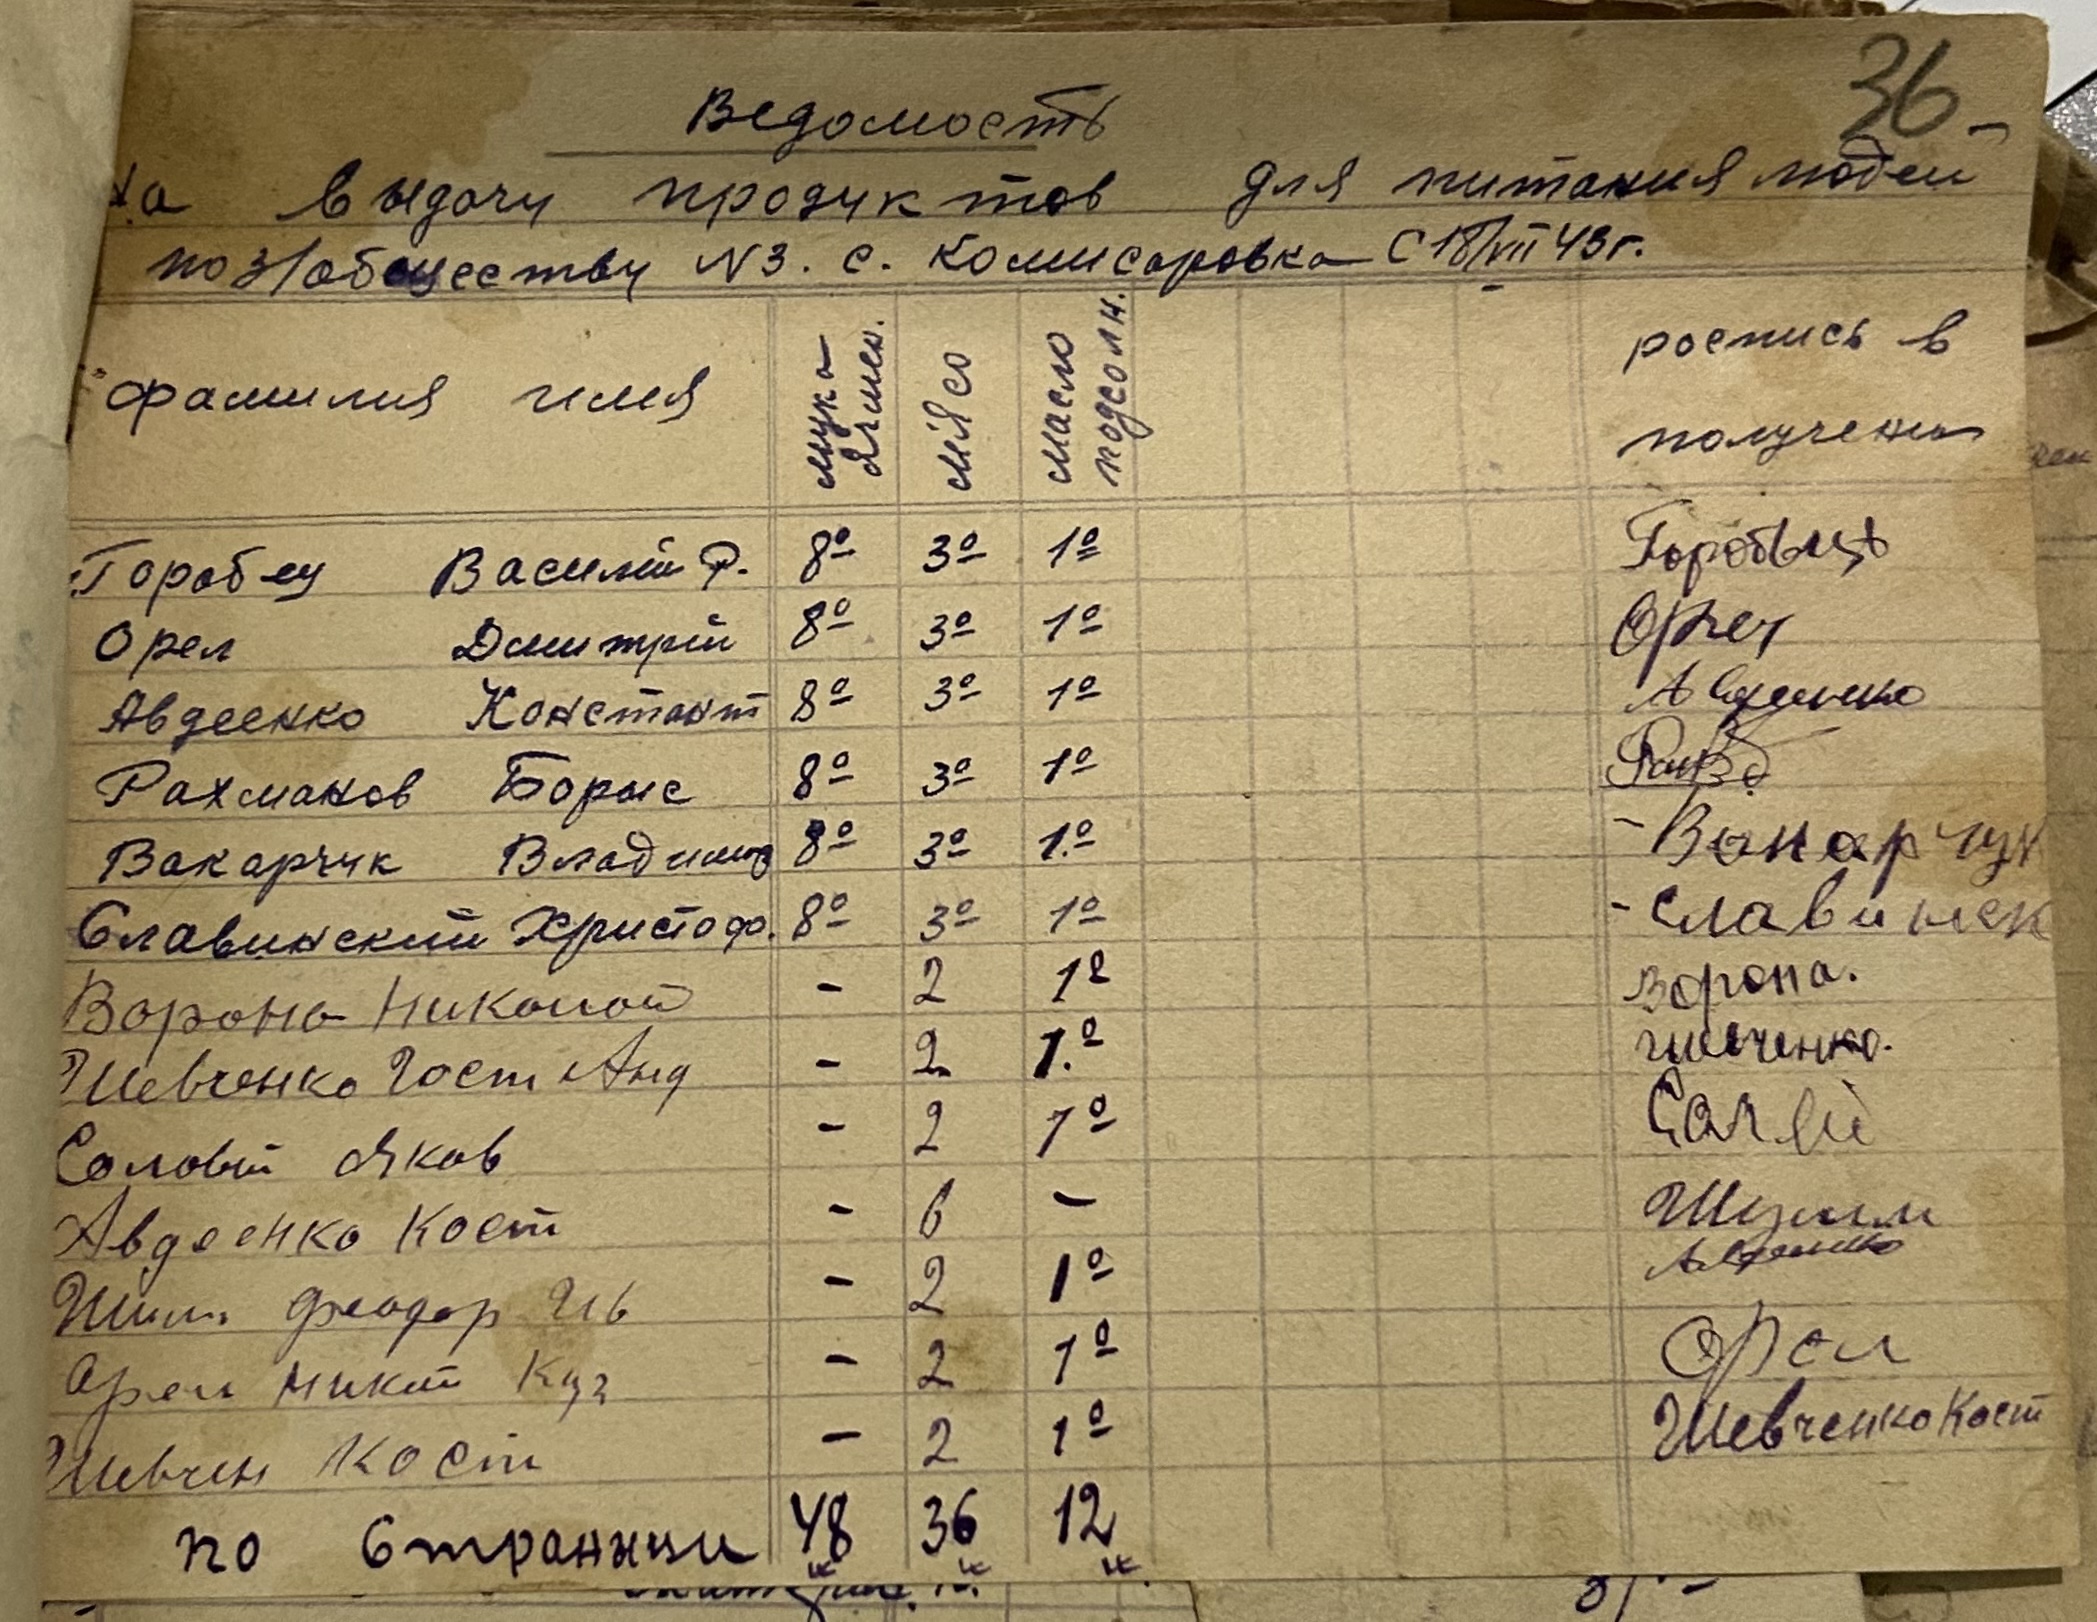 36
Ведомость
на выдачу продуктов для питания людей
по з/обществу N3. с. Комисаровка С 18/VII 43 г.
фамилия имя мука ячмен. мясо масло подсолн. роспись в получении
Горобец Василий Ф. 8º 3º 1º Горобець
Орел Дмитрий 8º 3º 1º Орел
Авдеенко Констант 8º 3º 1º Авдеенко
Рахманов Борыс 8º 3º 1º
Вакарчук Владимир 8º 3º 1.º - Вакарчук
Славинский Христоф. 8º 3º 1º - Славинск
Ворона Николай - 2 1º Ворона.
Шевченко Гост Анд - 2 1.º Шевченко.
Соловй Яков - 2 1º
Авдеенко Кост - 6 -
Шил. Феодор Ив - 2 1º Авдеенко
Орел Никит Куз - 2 1º Орел
Шевчен Кост - 2 1º Шевченко Кост
по Странници 48 36 12